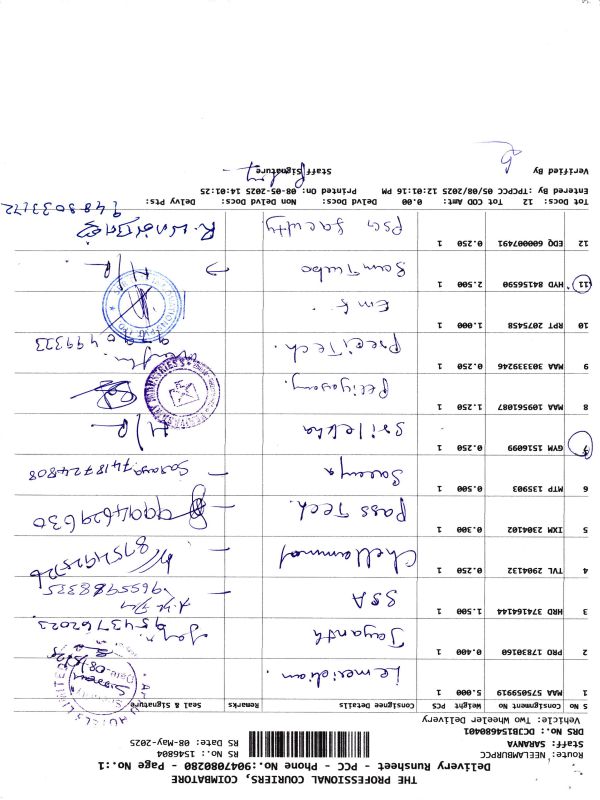 THE PROFESSIONAL COURIERS, COIMBATORE
Delivery Runsheet - PCC - Phone No.:9047080280 - Page No.:1
Route: NEELAMBURPCC RS No.: 1546804
Staff: SARANYA RS Date: 08-May-2025
DRS No.: DCJB154680401
Vehicle: Two Wheeler Delivery
S No Consignment No Weight PCS Consignee Details Remarks Seal & Signature
1 MAA 575659919 5.000 1 Lemeridian.
2 PRO 17839160 0.400 1 Jayanth 9543762023
3 HRD 37416144 1.500 1 SSA 9655988325
4 TVL 2904132 0.250 1 Chellammal
5 IXM 2304102 0.300 1 Pass Tech. 9994629630
6 MTP 135903 0.500 1 Saranya Saranya. 7418724808
7 GYM 1516099 0.250 1 Srilekha H/R
8 MAA 109561087 1.250 1 Periyasamy.
9 MAA 303339246 0.250 1 PreciTech.
10 RPT 2075458 1.000 1 Em f.
11 HYD 84156590 2.500 1 Sam Turbo H/R
12 EDQ 600007491 0.250 1 PSG Faculty
Tot Docs: 12 Tot COD Amt: 0.00 Delvd Docs: Non Delvd Docs: Delvy Pts: 9489033172
Entered By :TPCPCC 05/08/2025 12:01:16 PM Printed On: 08-05-2025 14:01:25
Verified By Staff Signature